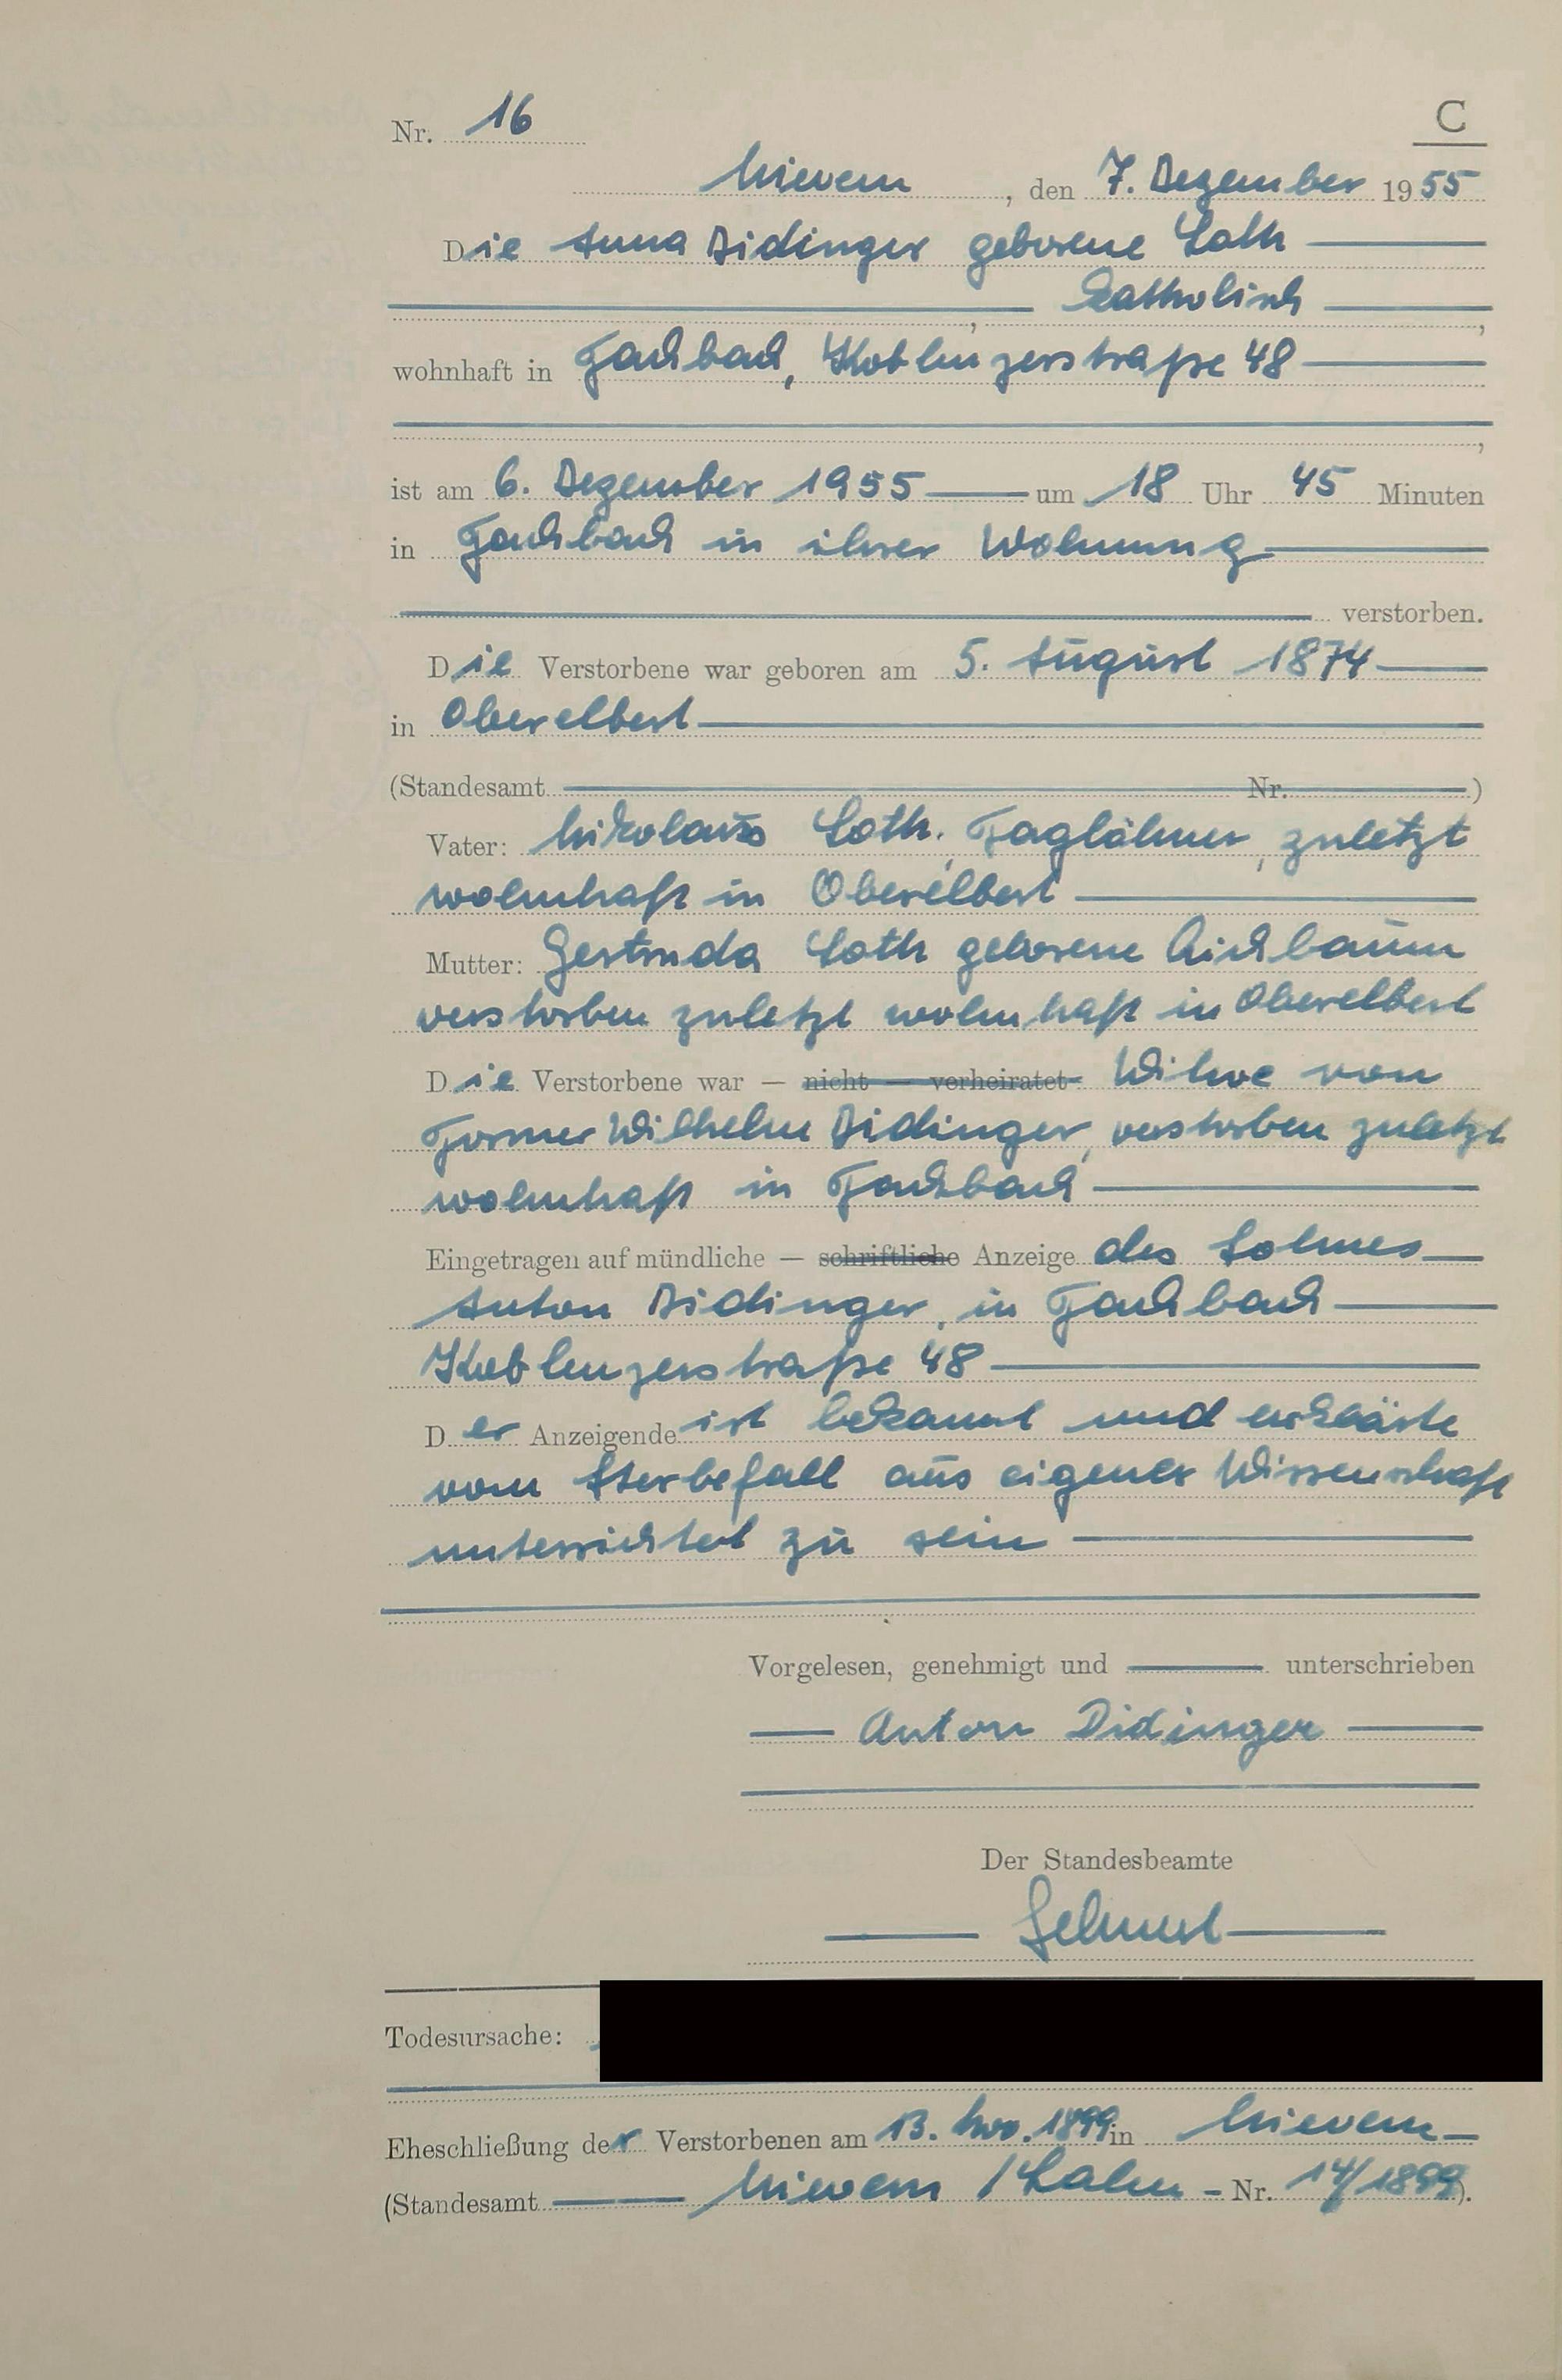 Nr. 16
C
Nievern, den 7. Dezember 1955
Die Anna Didinger geborene Loth
katholisch,
wohnhaft in Fachbach, Koblenzerstraße 48
,
ist am 6. Dezember 1955 um 18 Uhr 45 Minuten
in Fachbach in ihrer Wohnung
verstorben.
Die Verstorbene war geboren am 5. August 1874
in Oberelbert
(Standesamt Nr. )
Vater: Nikolaus Loth, Taglöhner, zuletzt
wohnhaft in Oberelbert
Mutter: Gertruda Loth geborene Aichbaum
verstorben zuletzt wohnhaft in Oberelbert
Die Verstorbene war — nicht — verheiratet Witwe von
Former Wilhelm Didinger, verstorben zuletzt
wohnhaft in Fachbach
Eingetragen auf mündliche — schriftliche Anzeige des Sohnes
Anton Didinger, in Fachbach
Koblenzerstraße 48
Der Anzeigende ist bekannt und erklärte
vom Sterbefall aus eigener Wissenschaft
unterrichtet zu sein
Vorgelesen, genehmigt und unterschrieben
Anton Didinger
Der Standesbeamte
Todesursache:
Eheschließung der Verstorbenen am 13. Nov. 1899 in Nievern
(Standesamt Nievern / Lahn – Nr. 14/1899).